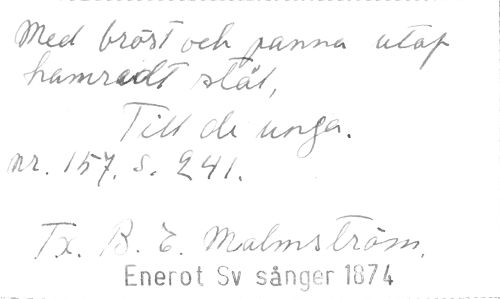 Med bröst och panna utaf
hamradt stål,
Till de unga.
nr. 157. s. 241.
Tx. B. E. Malmström.
Enerot Sv sånger 1874